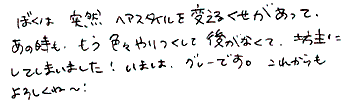 ぼくは 突然 ヘアスタイルを変えるくせがあって、
あの時も、もう色々やりつくして後がなくて、坊主に
してしまいました！いまは、グレーです。これからも
よろしくね〜！